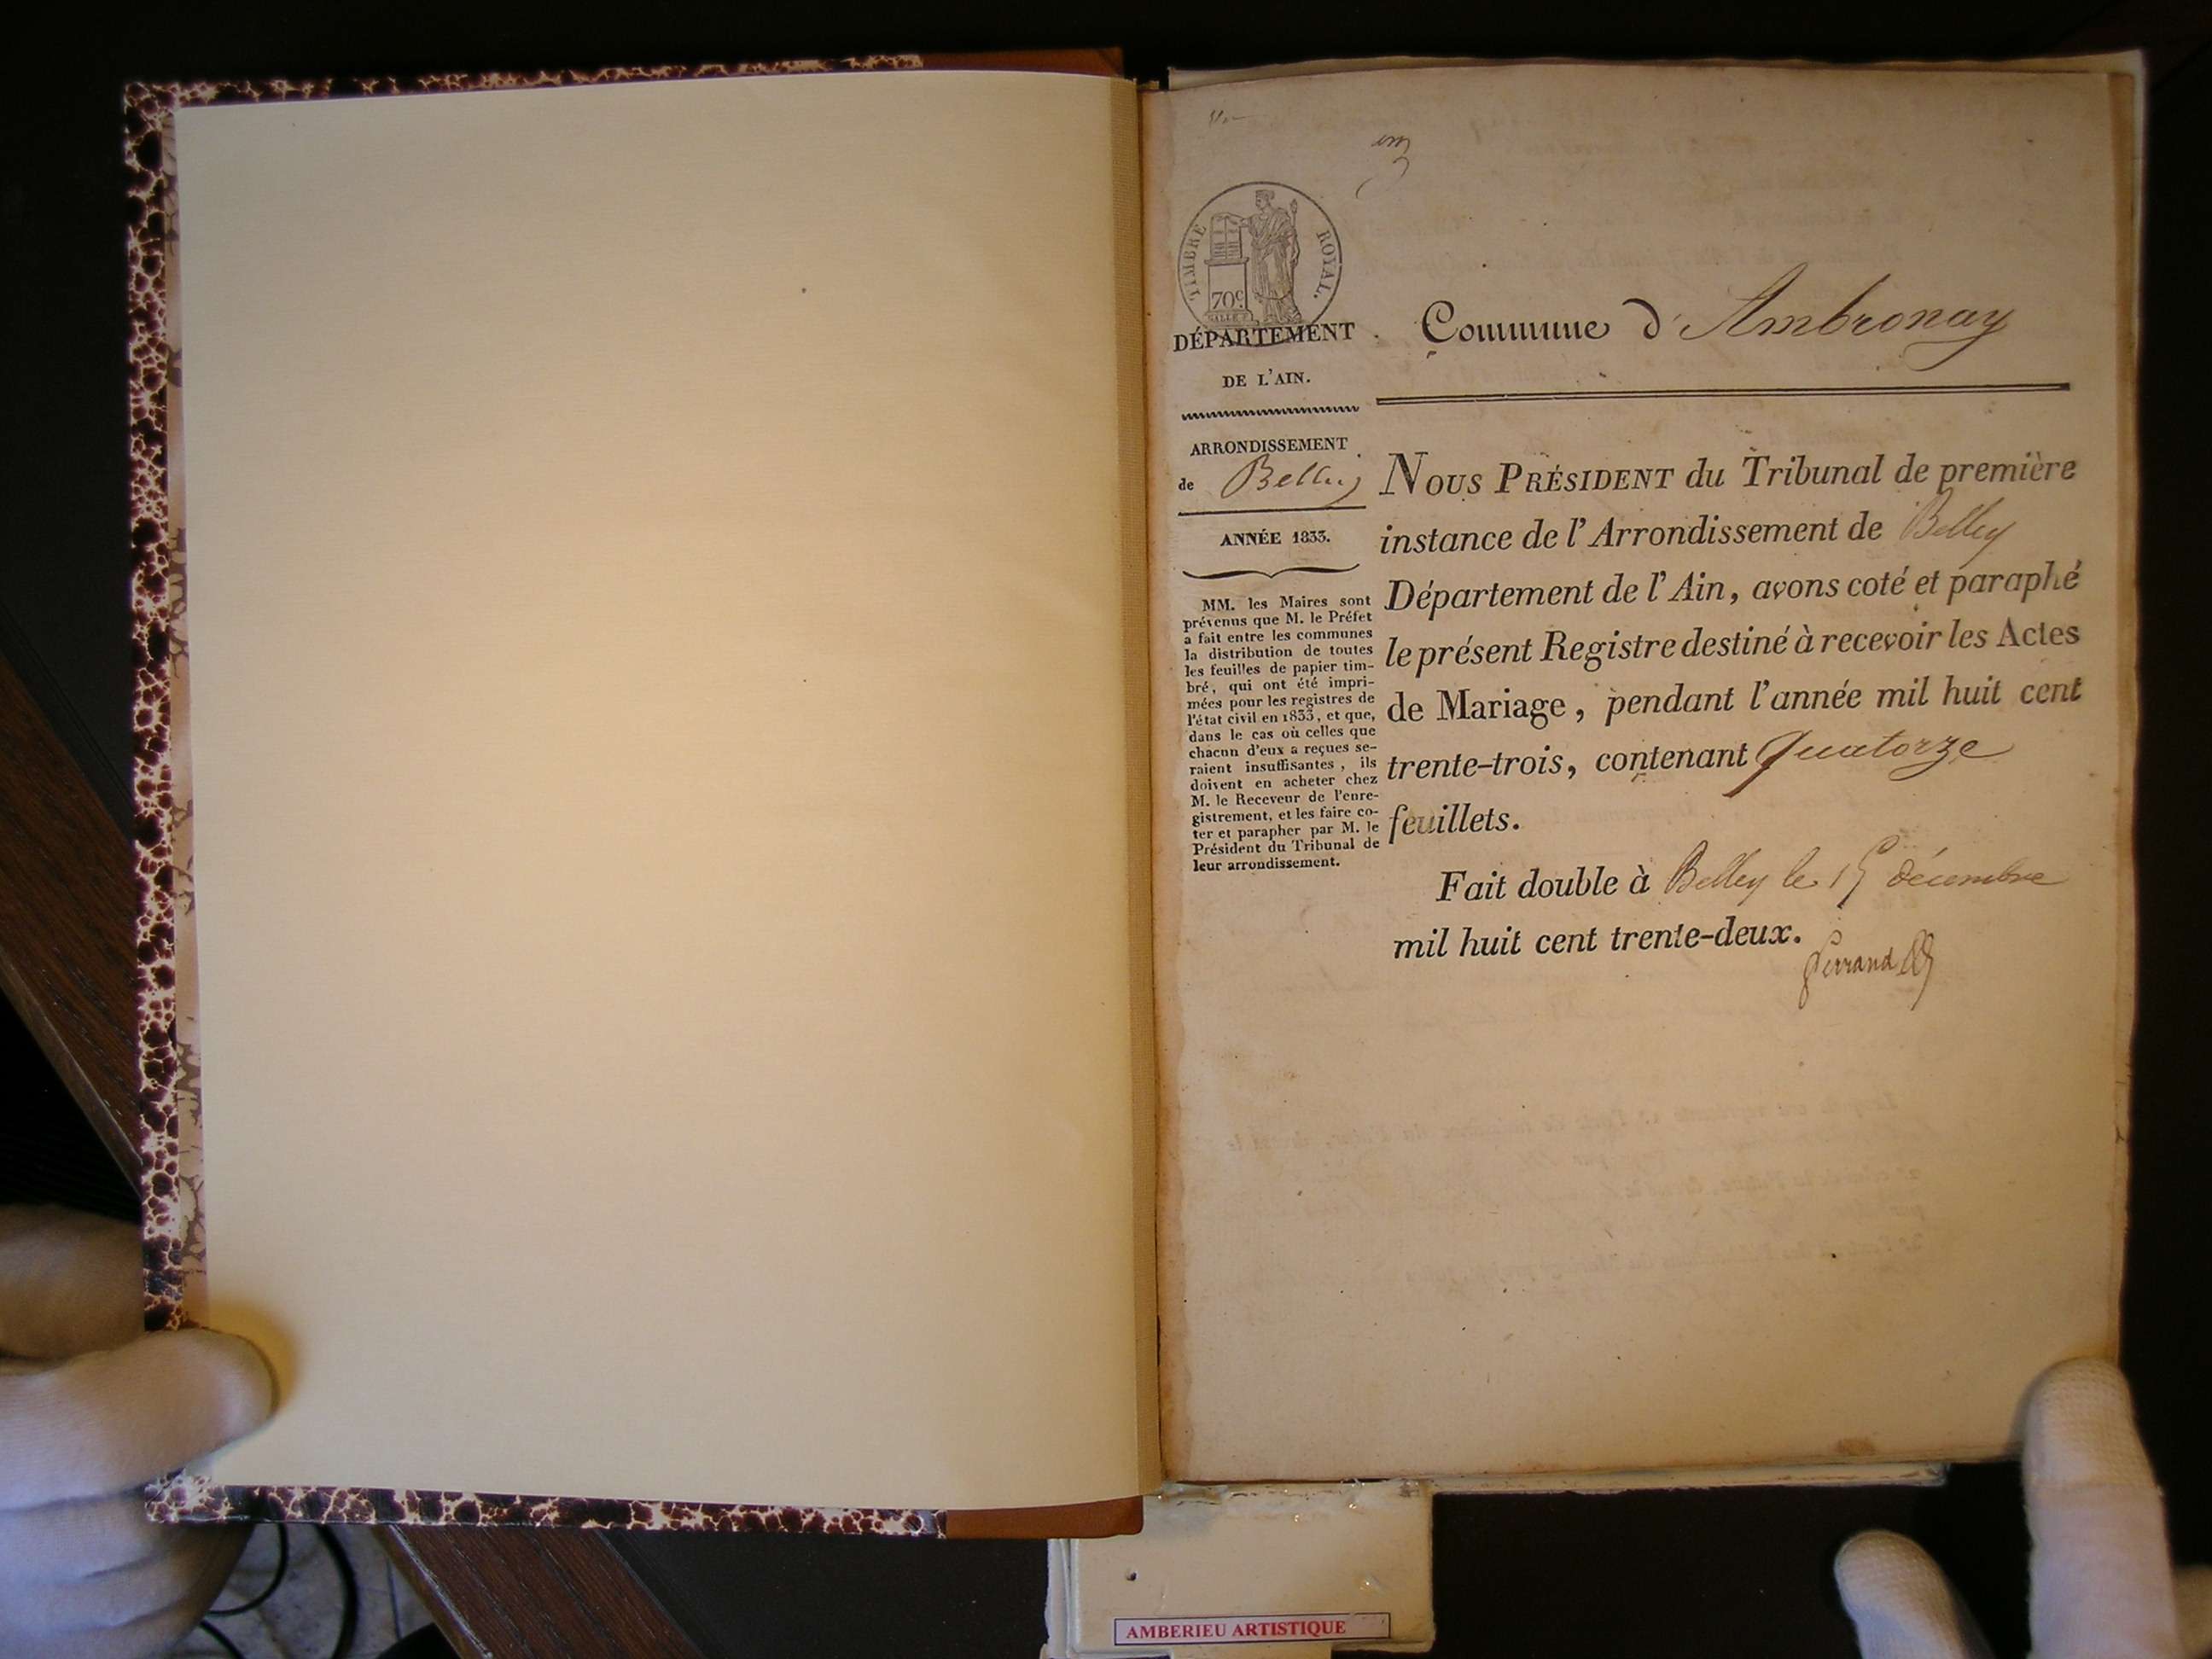 TIMBRE ROYAL.
70c
DÉPARTEMENT
DE L'AIN.
ARRONDISSEMENT
de Belley
ANNÉE 1833.
MM. les Maires sont
prévenus que M. le Préfet
a fait entre les communes
la distribution de toutes
les feuilles de papier tim-
bré, qui ont été impri-
mées pour les registres de
l'état civil en 1833, et que,
dans le cas où celles que
chacun d'eux a reçues se-
raient insuffisantes, ils
doivent en acheter chez
M. le Receveur de l'enre-
gistrement, et les faire co-
ter et parapher par M. le
Président du Tribunal de
leur arrondissement.
Commune d'Ambronay
NOUS PRÉSIDENT du Tribunal de première
instance de l'Arrondissement de Belley
Département de l'Ain, avons coté et paraphé
le présent Registre destiné à recevoir les Actes
de Mariage, pendant l'année mil huit cent
trente-trois, contenant quatorze
feuillets.
Fait double à Belley le 15 décembre
mil huit cent trente-deux.
AMBERIEU ARTISTIQUE